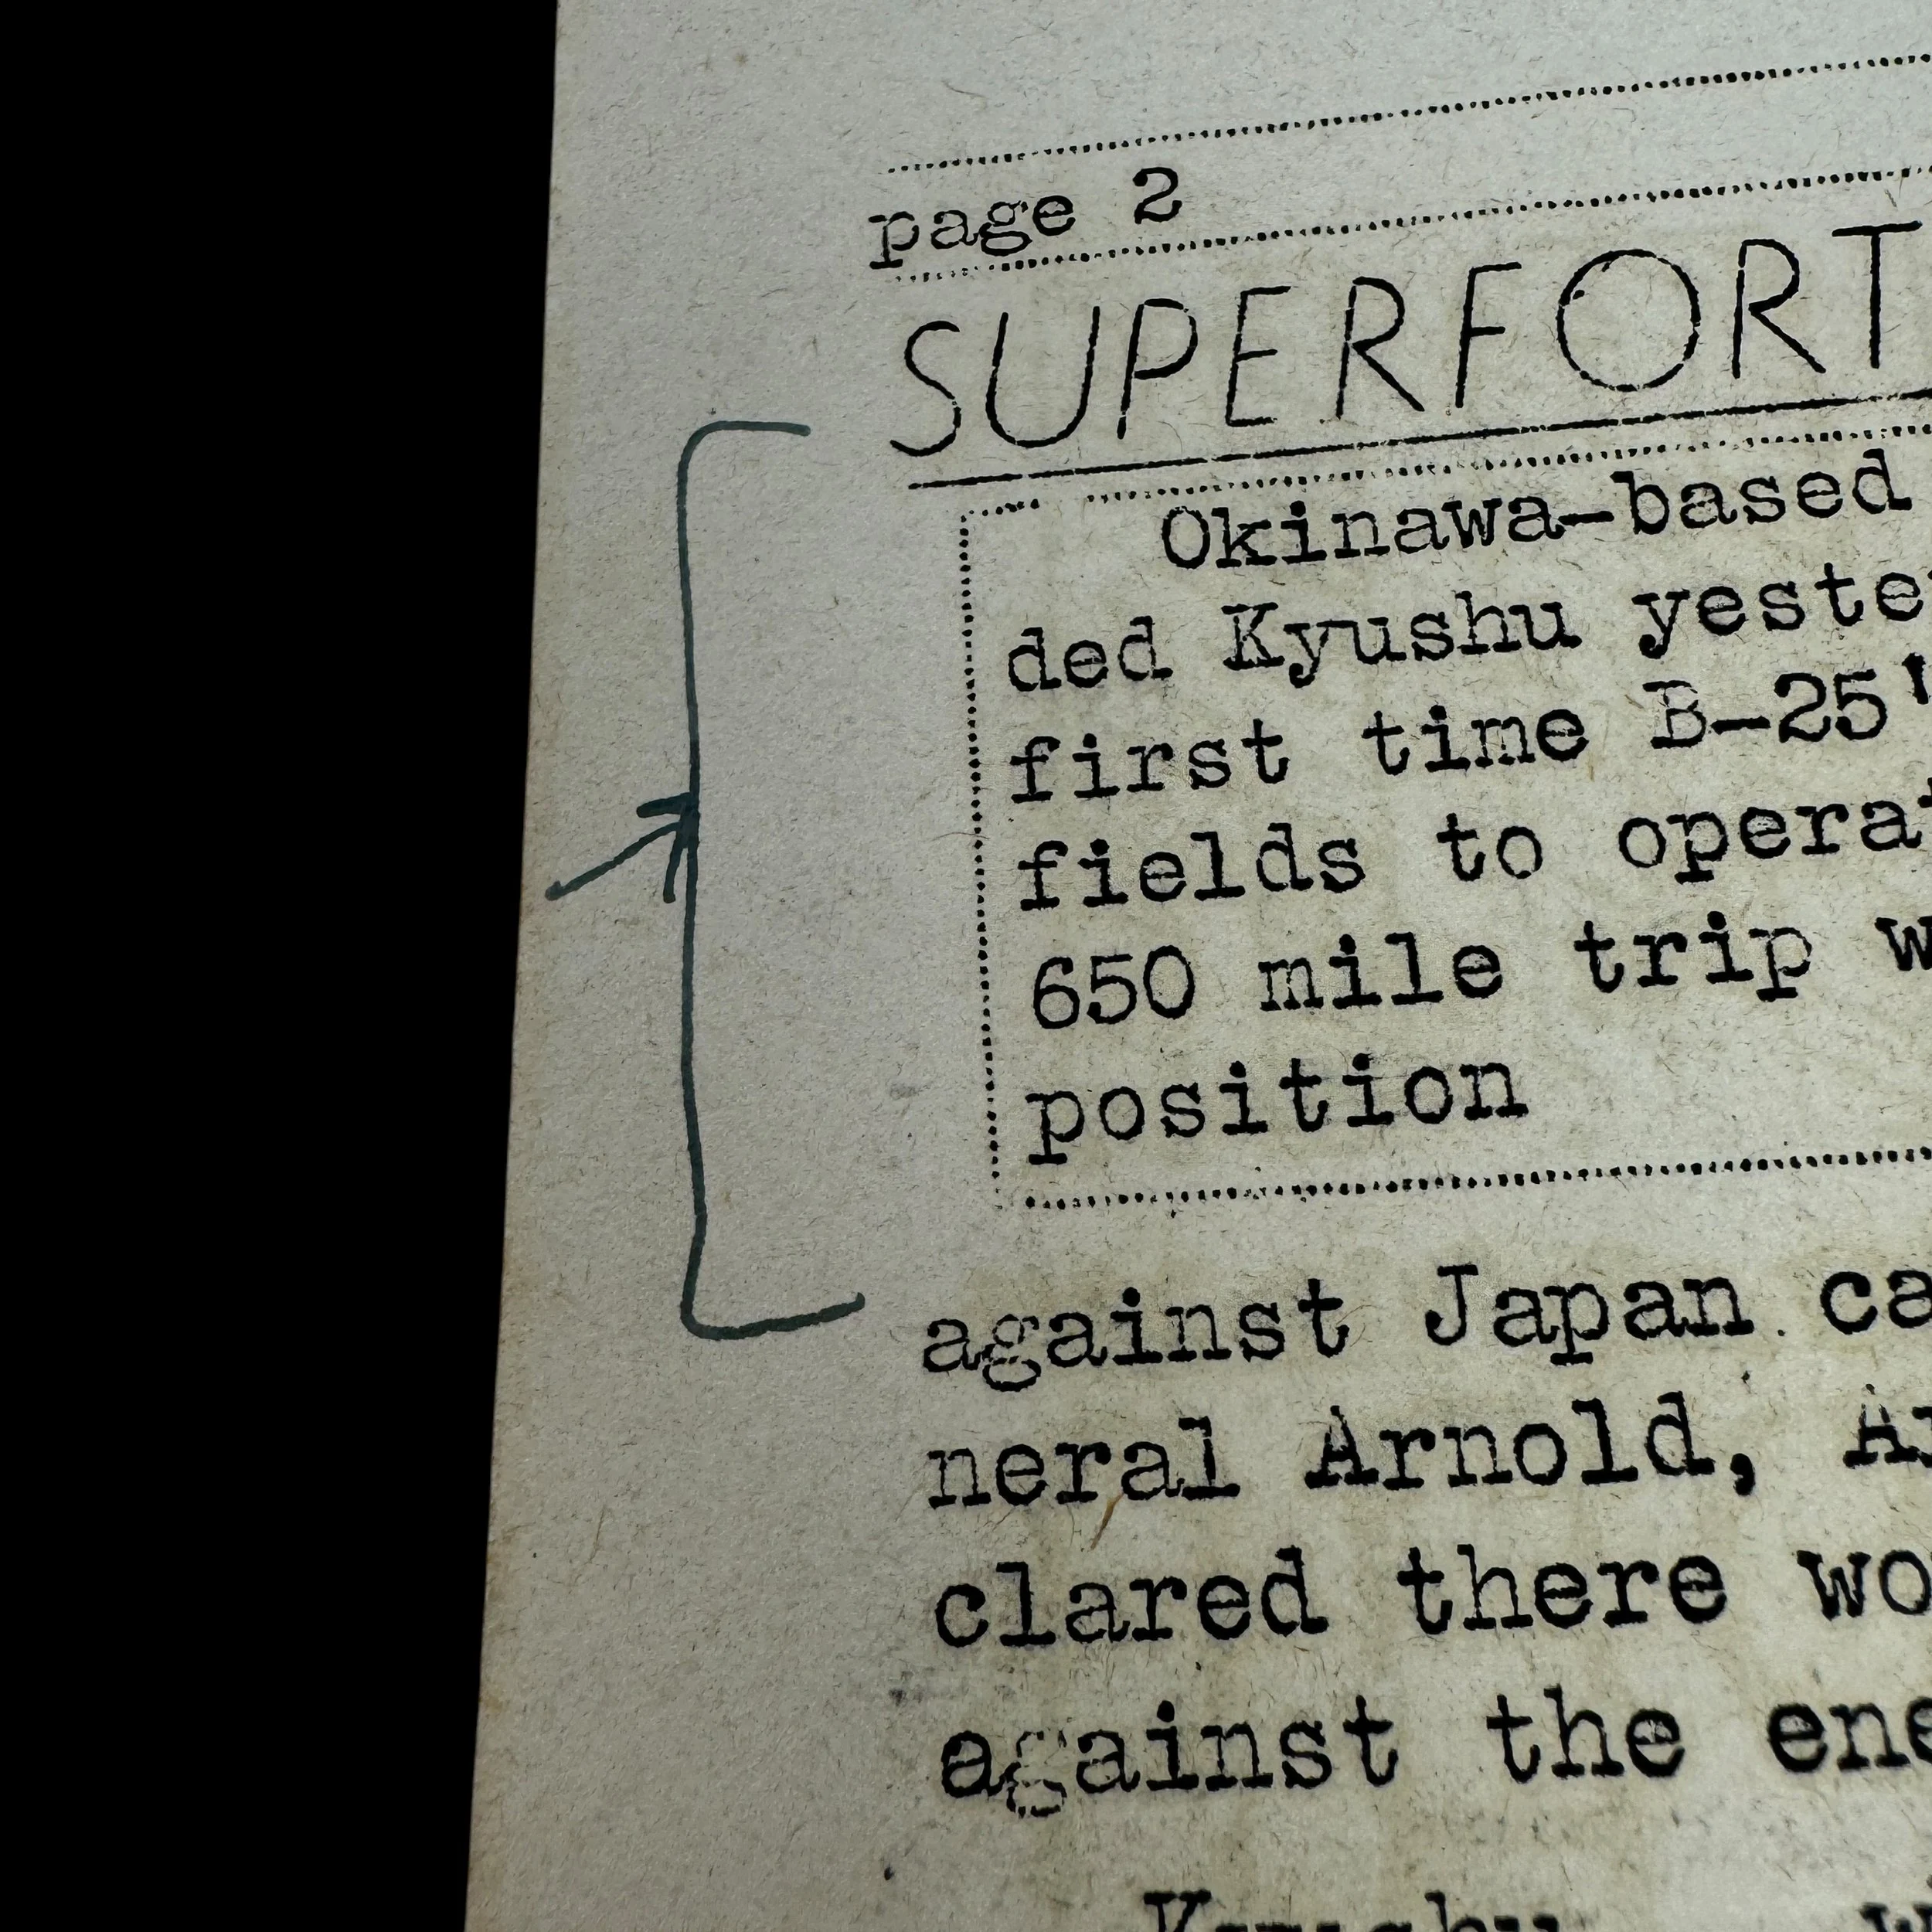 page 2
SUPERFORT
Okinawa-based
ded Kyushu yeste
first time B-25'
fields to operat
650 mile trip w
position
against Japan ca
neral Arnold, Ar
clared there wo
against the ene
Kyushu